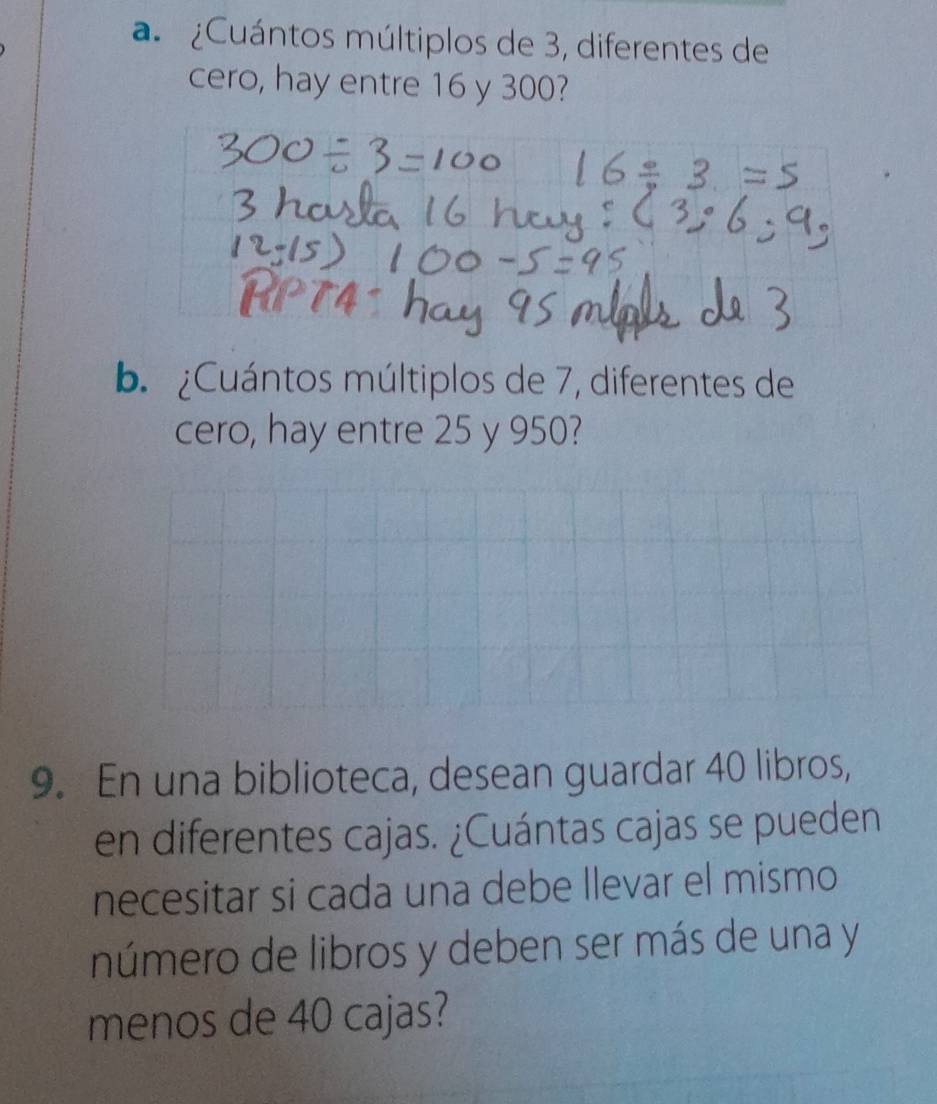 a. ¿Cuántos múltiplos de 3, diferentes de
cero, hay entre 16 y 300?
300 ÷ 3 = 100 16 ÷ 3 = 5
3 hasta 16 hay : ( 3; 6; 9;
12; 15) 100 - 5 = 95
RPTA: hay 95 de 3
b. ¿Cuántos múltiplos de 7, diferentes de
cero, hay entre 25 y 950?
9. En una biblioteca, desean guardar 40 libros,
en diferentes cajas. ¿Cuántas cajas se pueden
necesitar si cada una debe llevar el mismo
número de libros y deben ser más de una y
menos de 40 cajas?